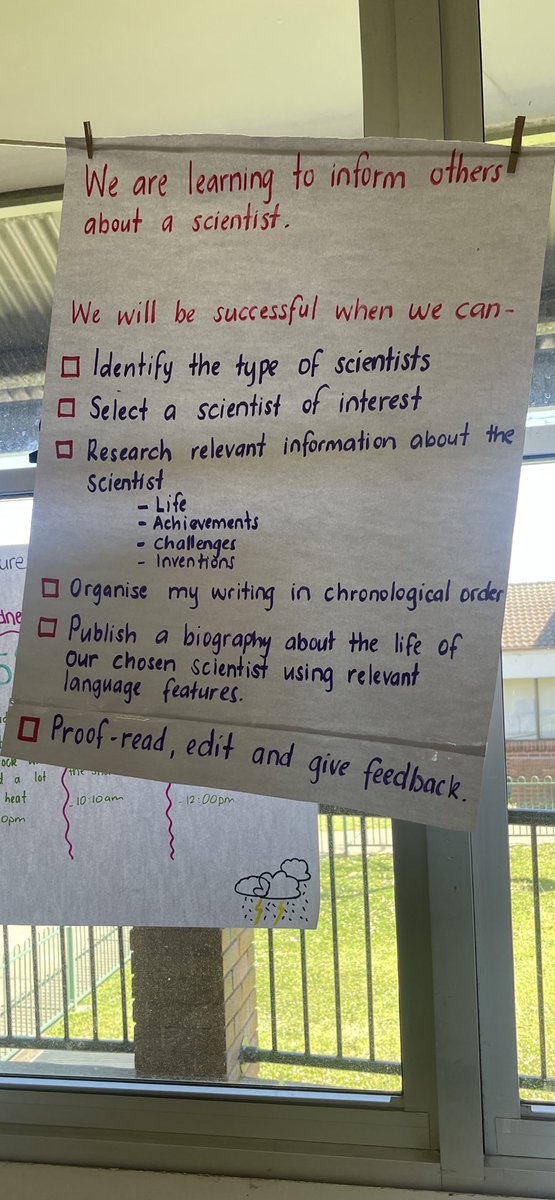 We are learning to inform others
about a scientist.
We will be successful when we can-
Identify the type of scientists
Select a scientist of interest
Research relevant information about the
scientist
- Life
- Achievements
- Challenges
- Inventions
Organise my writing in chronological order
Publish a biography about the life of
our chosen scientist using relevant
language features.
Proof-read, edit and give feedback.
ure
dne
a lot
heat
- 10:10am
- 12:00pm
0pm